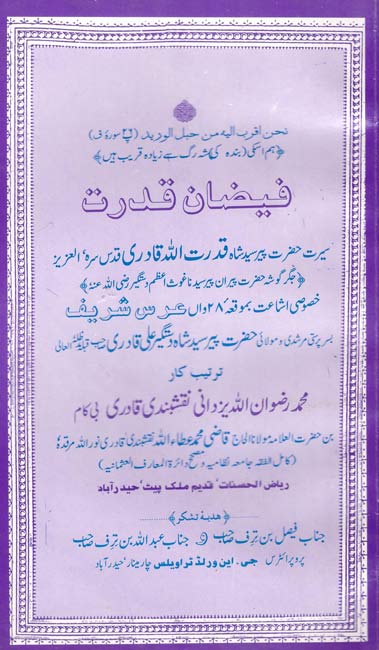 نحن اقرب اليه من حبل الوريد (پ ۲۶ سورۂ ق)
﴿ہم اسکی (بندہ کی) شہ رگ سے زیادہ قریب ہیں﴾
فیضان قدرت
سیرت حضرت پیر سید شاہ قدرت اللہ قادری قدس سرہٗ العزیز
﴿جگر گوشہ حضرت پیران پیر سیدنا غوث اعظم دستگیر رضی اللہ عنہٗ﴾
خصوصی اشاعت بموقعہ ۲۸ واں عرس شریف
بسرپرستی مرشدی و مولائی حضرت پیر سید شاہ دستگیر علی قادری صاحب قبلہ مدظلہ العالی
ترتیب کار
محمد رضوان اللہ یزدانی نقشبندی قادری بی کام
بن حضرت العلامہ مولانا الحاج قاضی محمد عطاء اللہ نقشبندی قادری نور اللہ مرقدہٗ
(کامل الفقہ جامعہ نظامیہ و مصحح دائرۃ المعارف العثمانیہ)
ریاض الحسنات، قدیم ملک پیٹ، حیدرآباد
﴿ہدیۂ تشکر﴾
جناب فیصل بن ترف صاحب و جناب عبداللہ بن ترف صاحب
پروپرائٹرس جی۔ این ورلڈ تراویلس چارمینار، حیدرآباد